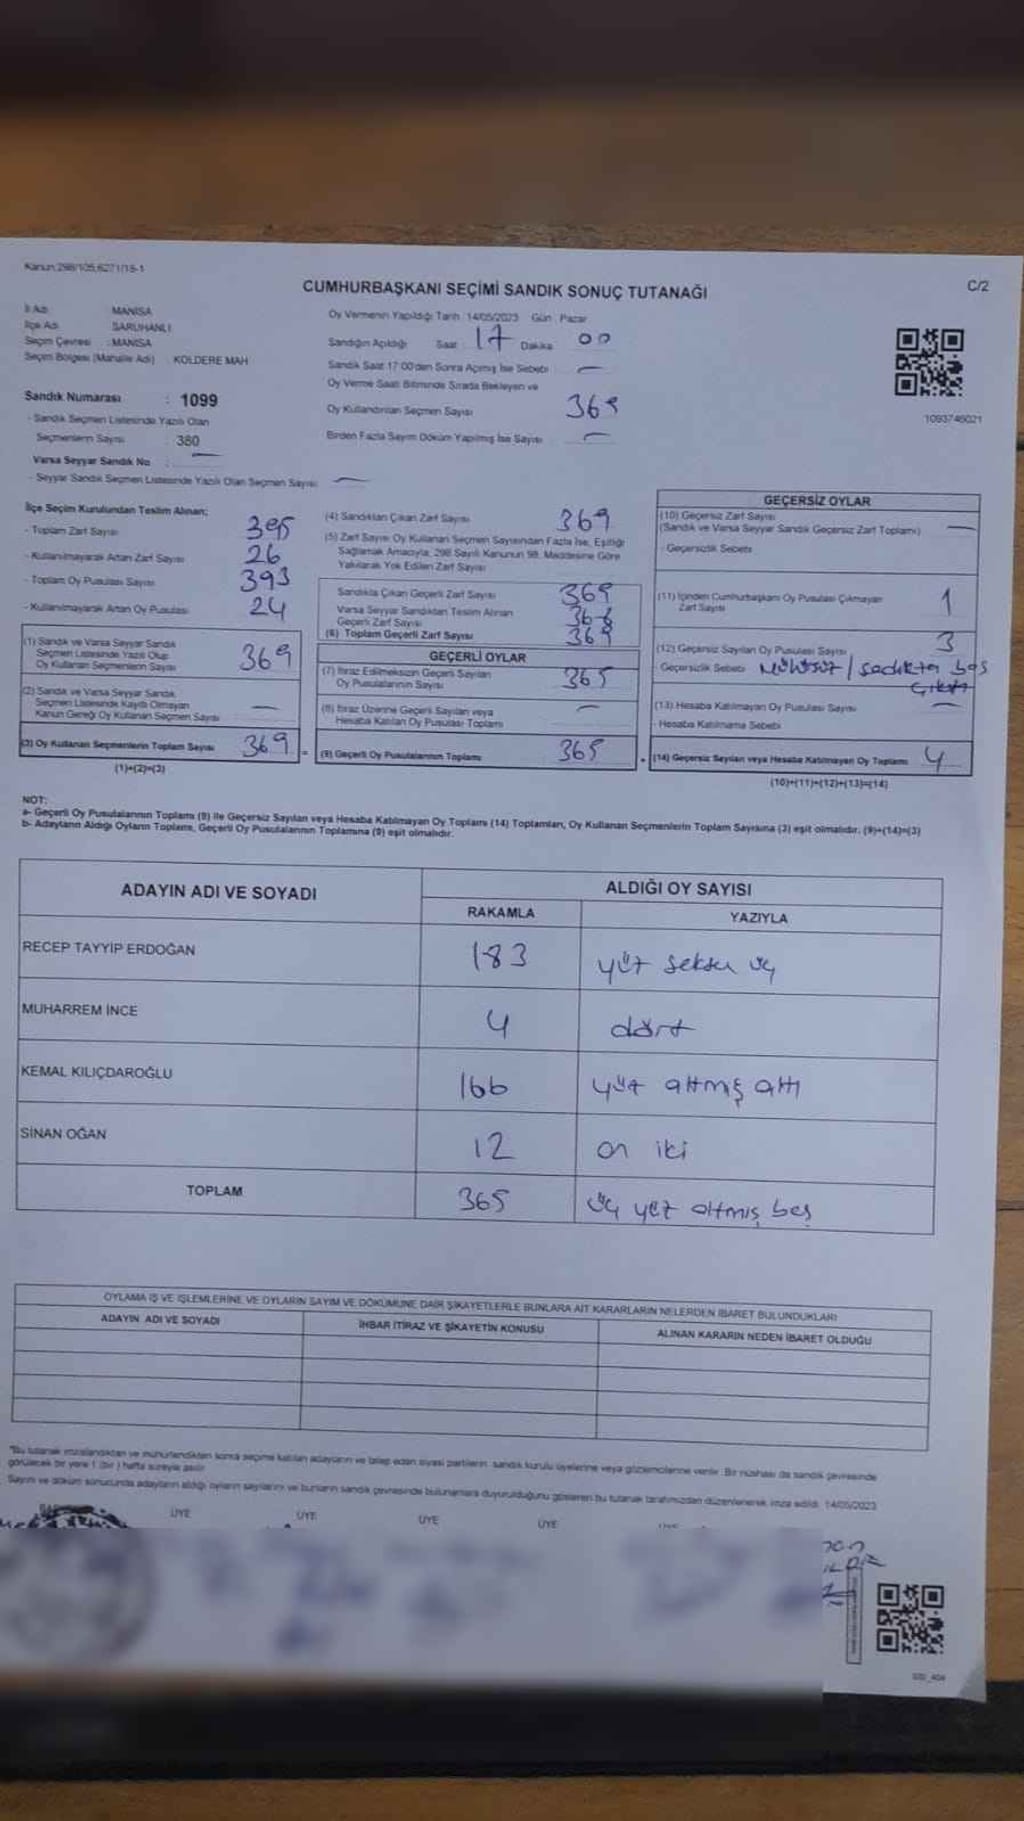 Kanun:298/105,6271/18-1
C/2
CUMHURBAŞKANI SEÇİMİ SANDIK SONUÇ TUTANAĞI
İl Adı MANİSA
İlçe Adı SARUHANLI
Seçim Çevresi : MANİSA
Seçim Bölgesi (Mahalle Adı) KOLDERE MAH
Sandık Numarası : 1099
- Sandık Seçmen Listesinde Yazılı Olan
Seçmenlerin Sayısı 380
Varsa Seyyar Sandık No : —
- Seyyar Sandık Seçmen Listesinde Yazılı Olan Seçmen Sayısı —
Oy Vermenin Yapıldığı Tarih 14/05/2023 Gün Pazar
Sandığın Açıldığı Saat 17 Dakika 00
Sandık Saat 17:00'den Sonra Açılmış İse Sebebi —
Oy Verme Saati Bitiminde Sırada Bekleyen ve
Oy Kullandırılan Seçmen Sayısı 369
Birden Fazla Sayım Döküm Yapılmış İse Sayısı —
1093746021
İlçe Seçim Kurulundan Teslim Alınan;
- Toplam Zarf Sayısı 395
- Kullanılmayarak Artan Zarf Sayısı 26
- Toplam Oy Pusulası Sayısı 393
- Kullanılmayarak Artan Oy Pusulası 24
(1) Sandık ve Varsa Seyyar Sandık
Seçmen Listesinde Yazılı Olup
Oy Kullanan Seçmenlerin Sayısı 369
(2) Sandık ve Varsa Seyyar Sandık
Seçmen Listesinde Kaydı Olmayan
Kanun Gereği Oy Kullanan Seçmen Sayısı —
(3) Oy Kullanan Seçmenlerin Toplam Sayısı 369
(1)+(2)=(3)
(4) Sandıktan Çıkan Zarf Sayısı 369
(5) Zarf Sayısı Oy Kullanan Seçmen Sayısından Fazla İse, Eşitliği
Sağlamak Amacıyla, 298 Sayılı Kanunun 98. Maddesine Göre
Yakılarak Yok Edilen Zarf Sayısı
Sandıkta Çıkan Geçerli Zarf Sayısı 369
Varsa Seyyar Sandıktan Teslim Alınan
Geçerli Zarf Sayısı
(6) Toplam Geçerli Zarf Sayısı 369
GEÇERLİ OYLAR
(7) İtiraz Edilmeksizin Geçerli Sayılan
Oy Pusulalarının Sayısı 365
(8) İtiraz Üzerine Geçerli Sayılan veya
Hesaba Katılan Oy Pusulası Toplamı —
(9) Geçerli Oy Pusulalarının Toplamı 365
GEÇERSİZ OYLAR
(10) Geçersiz Zarf Sayısı
(Sandık ve Varsa Seyyar Sandık Geçersiz Zarf Toplamı) —
- Geçersizlik Sebebi
(11) İçinden Cumhurbaşkanı Oy Pusulası Çıkmayan
Zarf Sayısı 1
(12) Geçersiz Sayılan Oy Pusulası Sayısı 3
Geçersizlik Sebebi Mühürsüz /
(13) Hesaba Katılmayan Oy Pusulası Sayısı —
- Hesaba Katılmama Sebebi
(14) Geçersiz Sayılan veya Hesaba Katılmayan Oy Toplamı 4
(10)+(11)+(12)+(13)=(14)
NOT:
a- Geçerli Oy Pusulalarının Toplamı (9) ile Geçersiz Sayılan veya Hesaba Katılmayan Oy Toplamı (14) Toplamları, Oy Kullanan Seçmenlerin Toplam Sayısına (3) eşit olmalıdır. (9)+(14)=(3)
b- Adayların Aldığı Oyların Toplamı, Geçerli Oy Pusulalarının Toplamına (9) eşit olmalıdır.
ADAYIN ADI VE SOYADI ALDIĞI OY SAYISI
RAKAMLA YAZIYLA
RECEP TAYYİP ERDOĞAN 183 yüz seksen üç
MUHARREM İNCE 4 dört
KEMAL KILIÇDAROĞLU 166 yüz altmış altı
SİNAN OĞAN 12 on iki
TOPLAM 365 üç yüz altmış beş
OYLAMA İŞ VE İŞLEMLERİNE VE OYLARIN SAYIM VE DÖKÜMÜNE DAİR ŞİKAYETLERLE BUNLARA AİT KARARLARIN NELERDEN İBARET BULUNDUKLARI
ADAYIN ADI VE SOYADI İHBAR İTİRAZ VE ŞİKAYETİN KONUSU ALINAN KARARIN NEDEN İBARET OLDUĞU
"Bu tutanak imzalandıktan ve mühürlendikten sonra seçime katılan adayların ve talep eden siyasi partilerin sandık kurulu üyelerine veya gözlemcilerine verilir. Bir nüshası da sandık çevresinde
görülecek bir yere 1 (bir) hafta süreyle asılır
Sayım ve döküm sonucunda adayların aldığı oyların sayılarını ve bunların sandık çevresinde bulunanlara duyurulduğunu gösteren bu tutanak tarafımızdan düzenlenerek imza edildi. 14/05/2023
ÜYE ÜYE ÜYE ÜYE